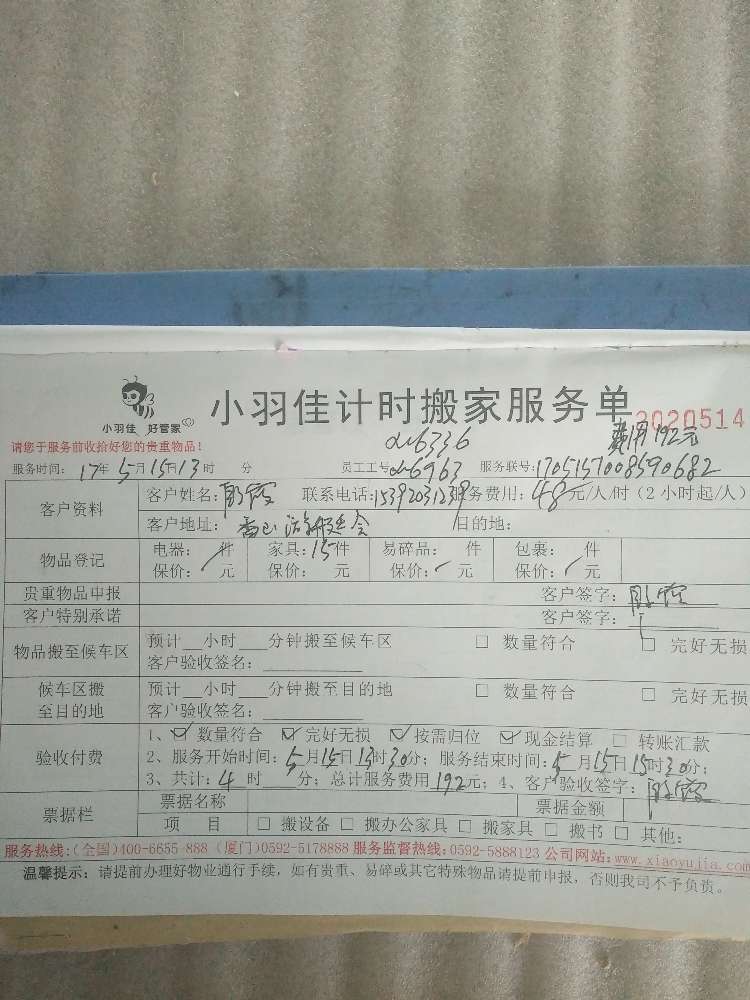 小羽佳 好管家
小羽佳计时搬家服务单 2020514
费用192元
请您于服务前收拾好您的贵重物品!
6336
服务时间: 17年5月15日13时 分 员工工号 6963 服务联号:1705157008590682
客户资料 客户姓名: 联系电话:15392031239 服务费用: 48元/人/时（2小时起/人）
客户地址: 目的地:
物品登记 电器: 件 家具:15件 易碎品: 件 包裹: 件
保价: 元 保价: 元 保价: 元 保价: 元
贵重物品申报 客户签字:
客户特别承诺 客户签字:
物品搬至候车区 预计__小时___分钟搬至候车区 □ 数量符合 □ 完好无损
客户验收签名:
候车区搬至目的地 预计__小时___分钟搬至目的地 □ 数量符合 □ 完好无损
客户验收签名:
验收付费 1、☑ 数量符合 ☑ 完好无损 ☑ 按需归位 ☑ 现金结算 □ 转账汇款
2、服务开始时间: 5月15日13时30分; 服务结束时间: 5月15日15时30分;
3、共计: 4时 分; 总计服务费用 192元; 4、客户验收签字:
票据栏 票据名称 票据金额
项 目 □ 搬设备 □ 搬办公家具 □ 搬家具 □ 搬书 □ 其他:
服务热线:(全国)400-6655 888 (厦门)0592-5178888 服务监督热线:0592-5888123 公司网站:www.xiaoyujia.com
温馨提示: 请提前办理好物业通行手续, 如有贵重、易碎或其它特殊物品请提前申报, 否则我司不予负责。